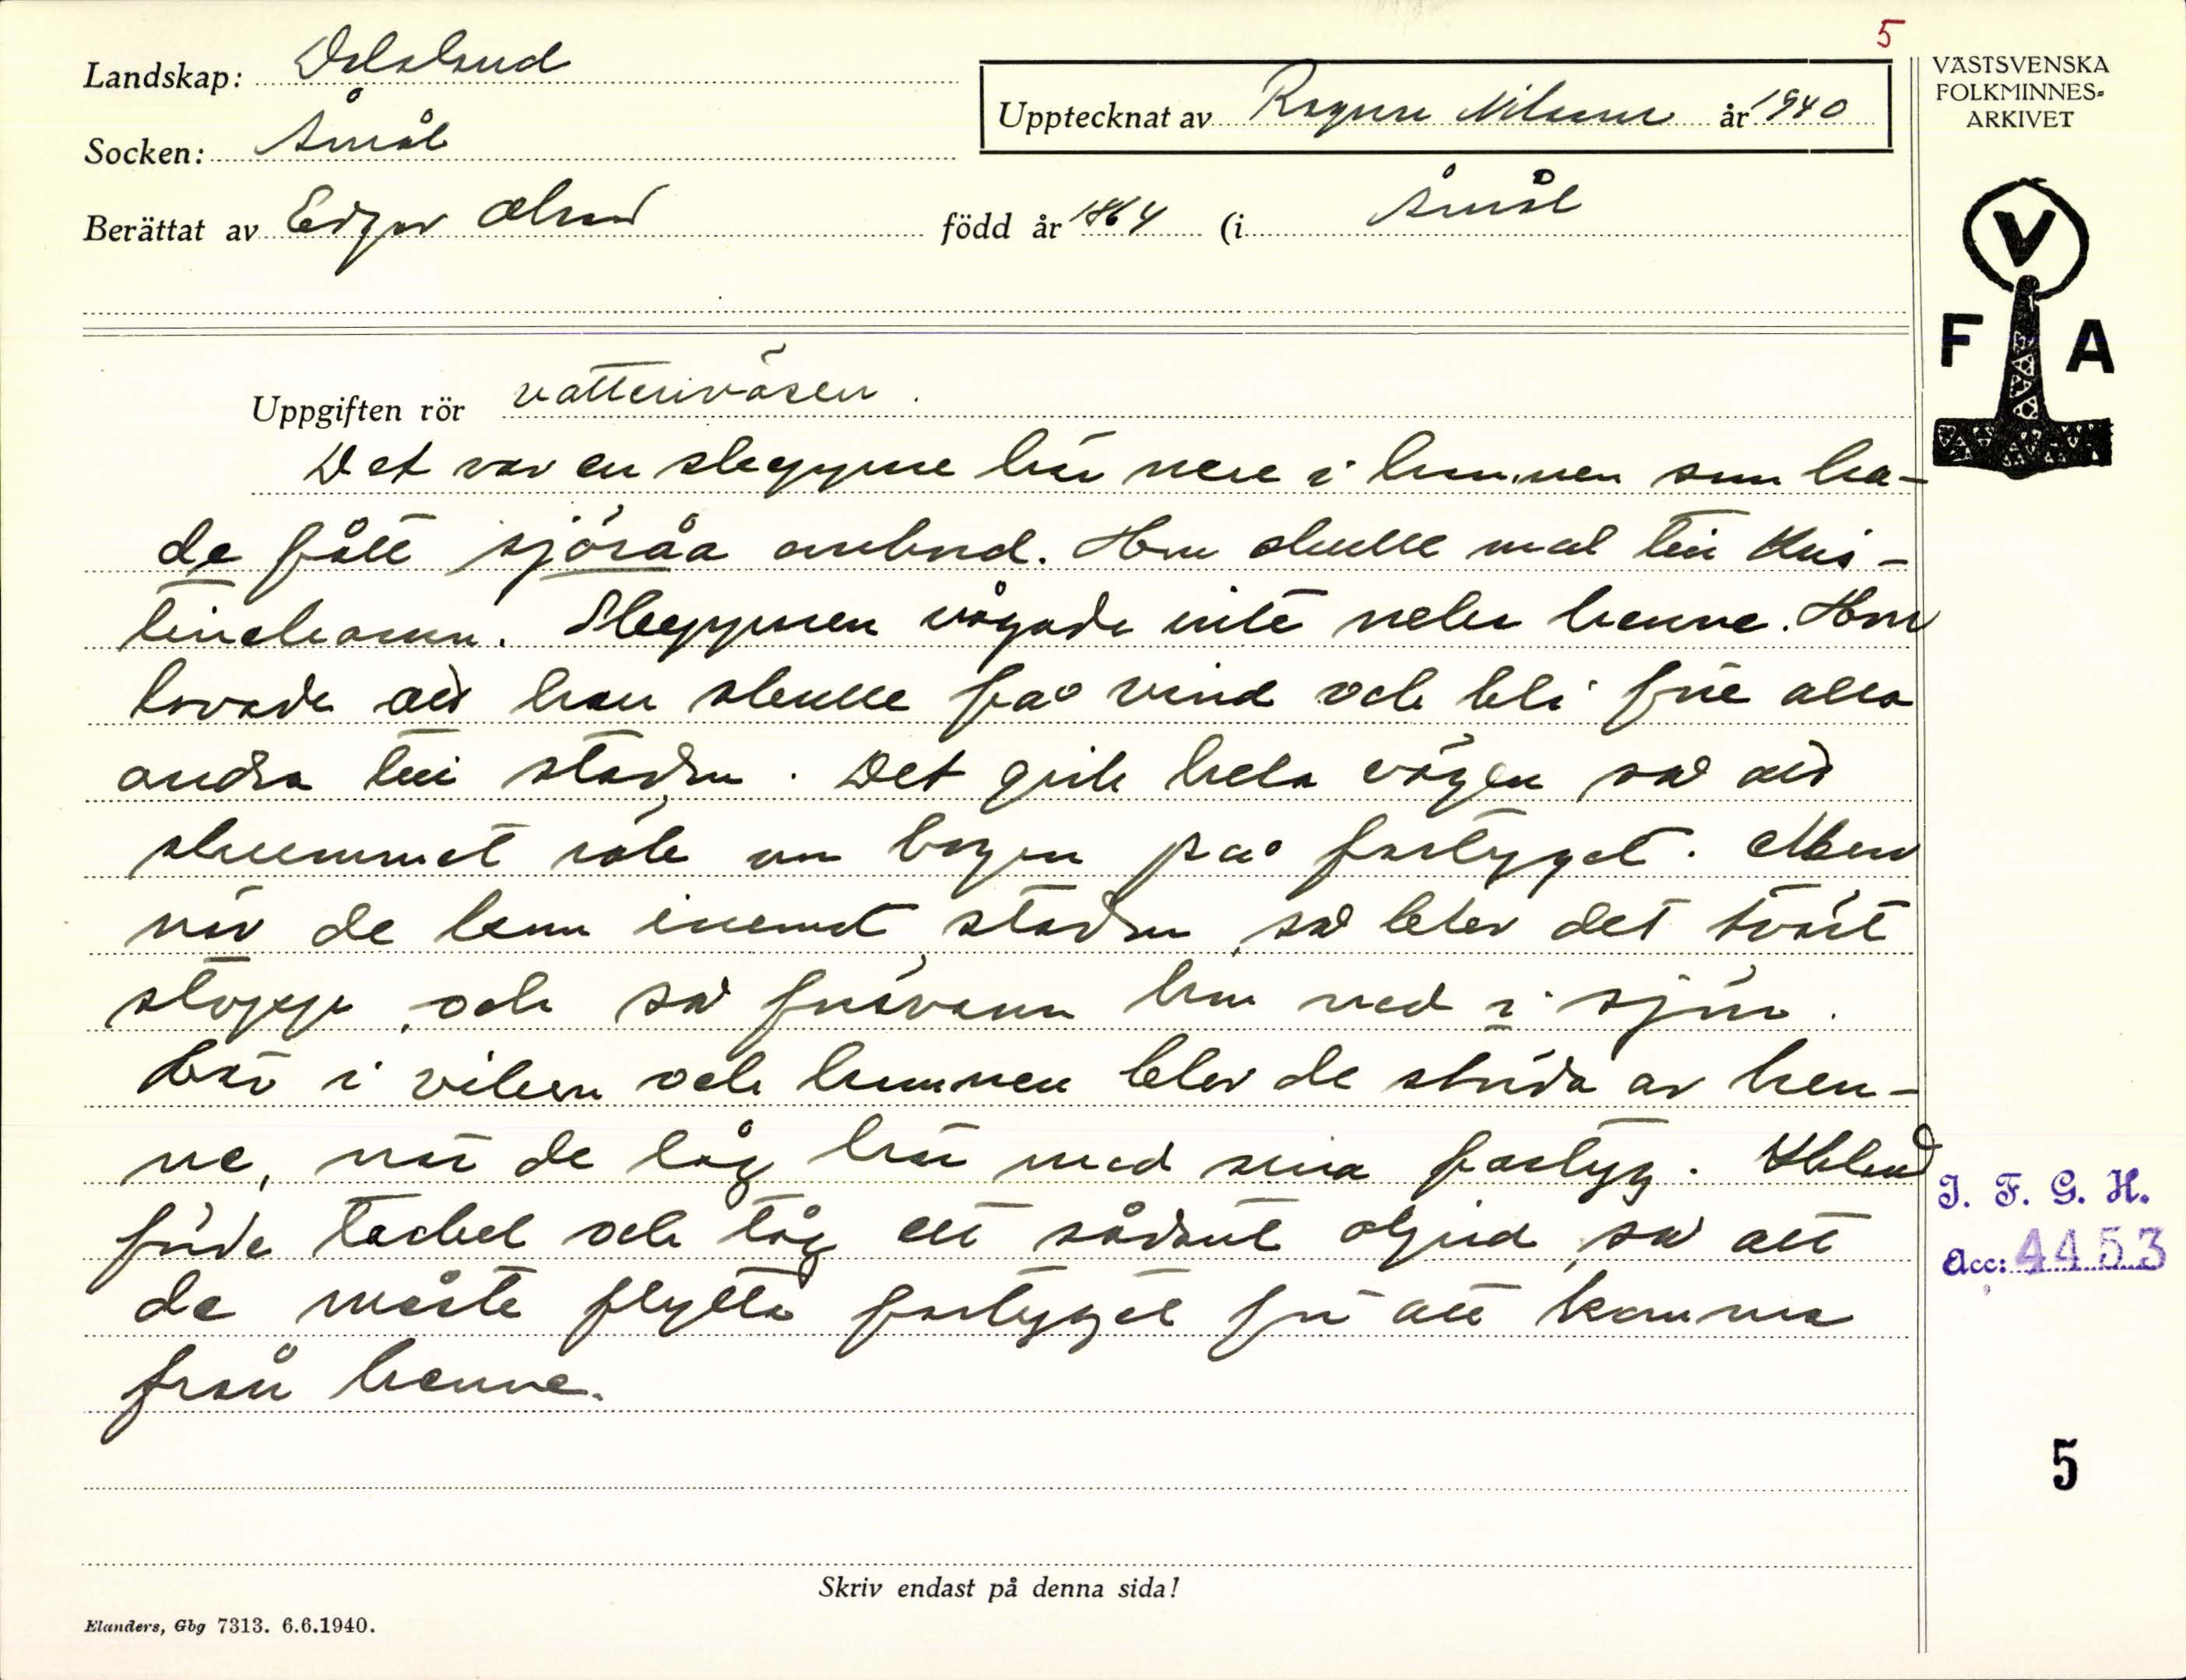 5
Landskap: Dalsland
Socken: Åmål
Upptecknat av Ragnar Nilsson år 1940
VÄSTSVENSKA
FOLKMINNES-
ARKIVET
Berättat av Edgar Olsson född år 1864 (i Åmål
V
F A
Uppgiften rör vattenväsen.
Det var en skeppare här nere i hamnen som ha-
de fått sjöråa ombord. Hon skulle med till Kris-
tinehamn. Skepparen vågade inte neka henne. Hon
lovade att han skulle få vind och bli före alla
andra till staden. Det gick hela vägen så att
skummet rök om bogen på fartyget. Men
när de kom inemot staden, så blev det tvärt
stopp, och så försvann hon ned i sjön.
Här i viken och hamnen blev de störda av hen-
ne, när de låg här med sina fartyg. Ibland
förde tackel och tåg ett sådant oljud, så att
de måste flytta fartyget för att komma
från henne.
I. F. G. H.
Acc: 4453
5
Skriv endast på denna sida!
Elanders, Gbg 7313. 6.6.1940.